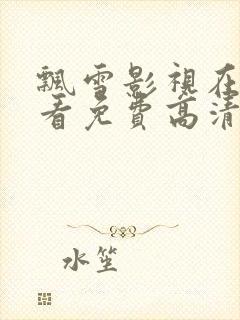 飄雪影視在
看免費高清
水笙